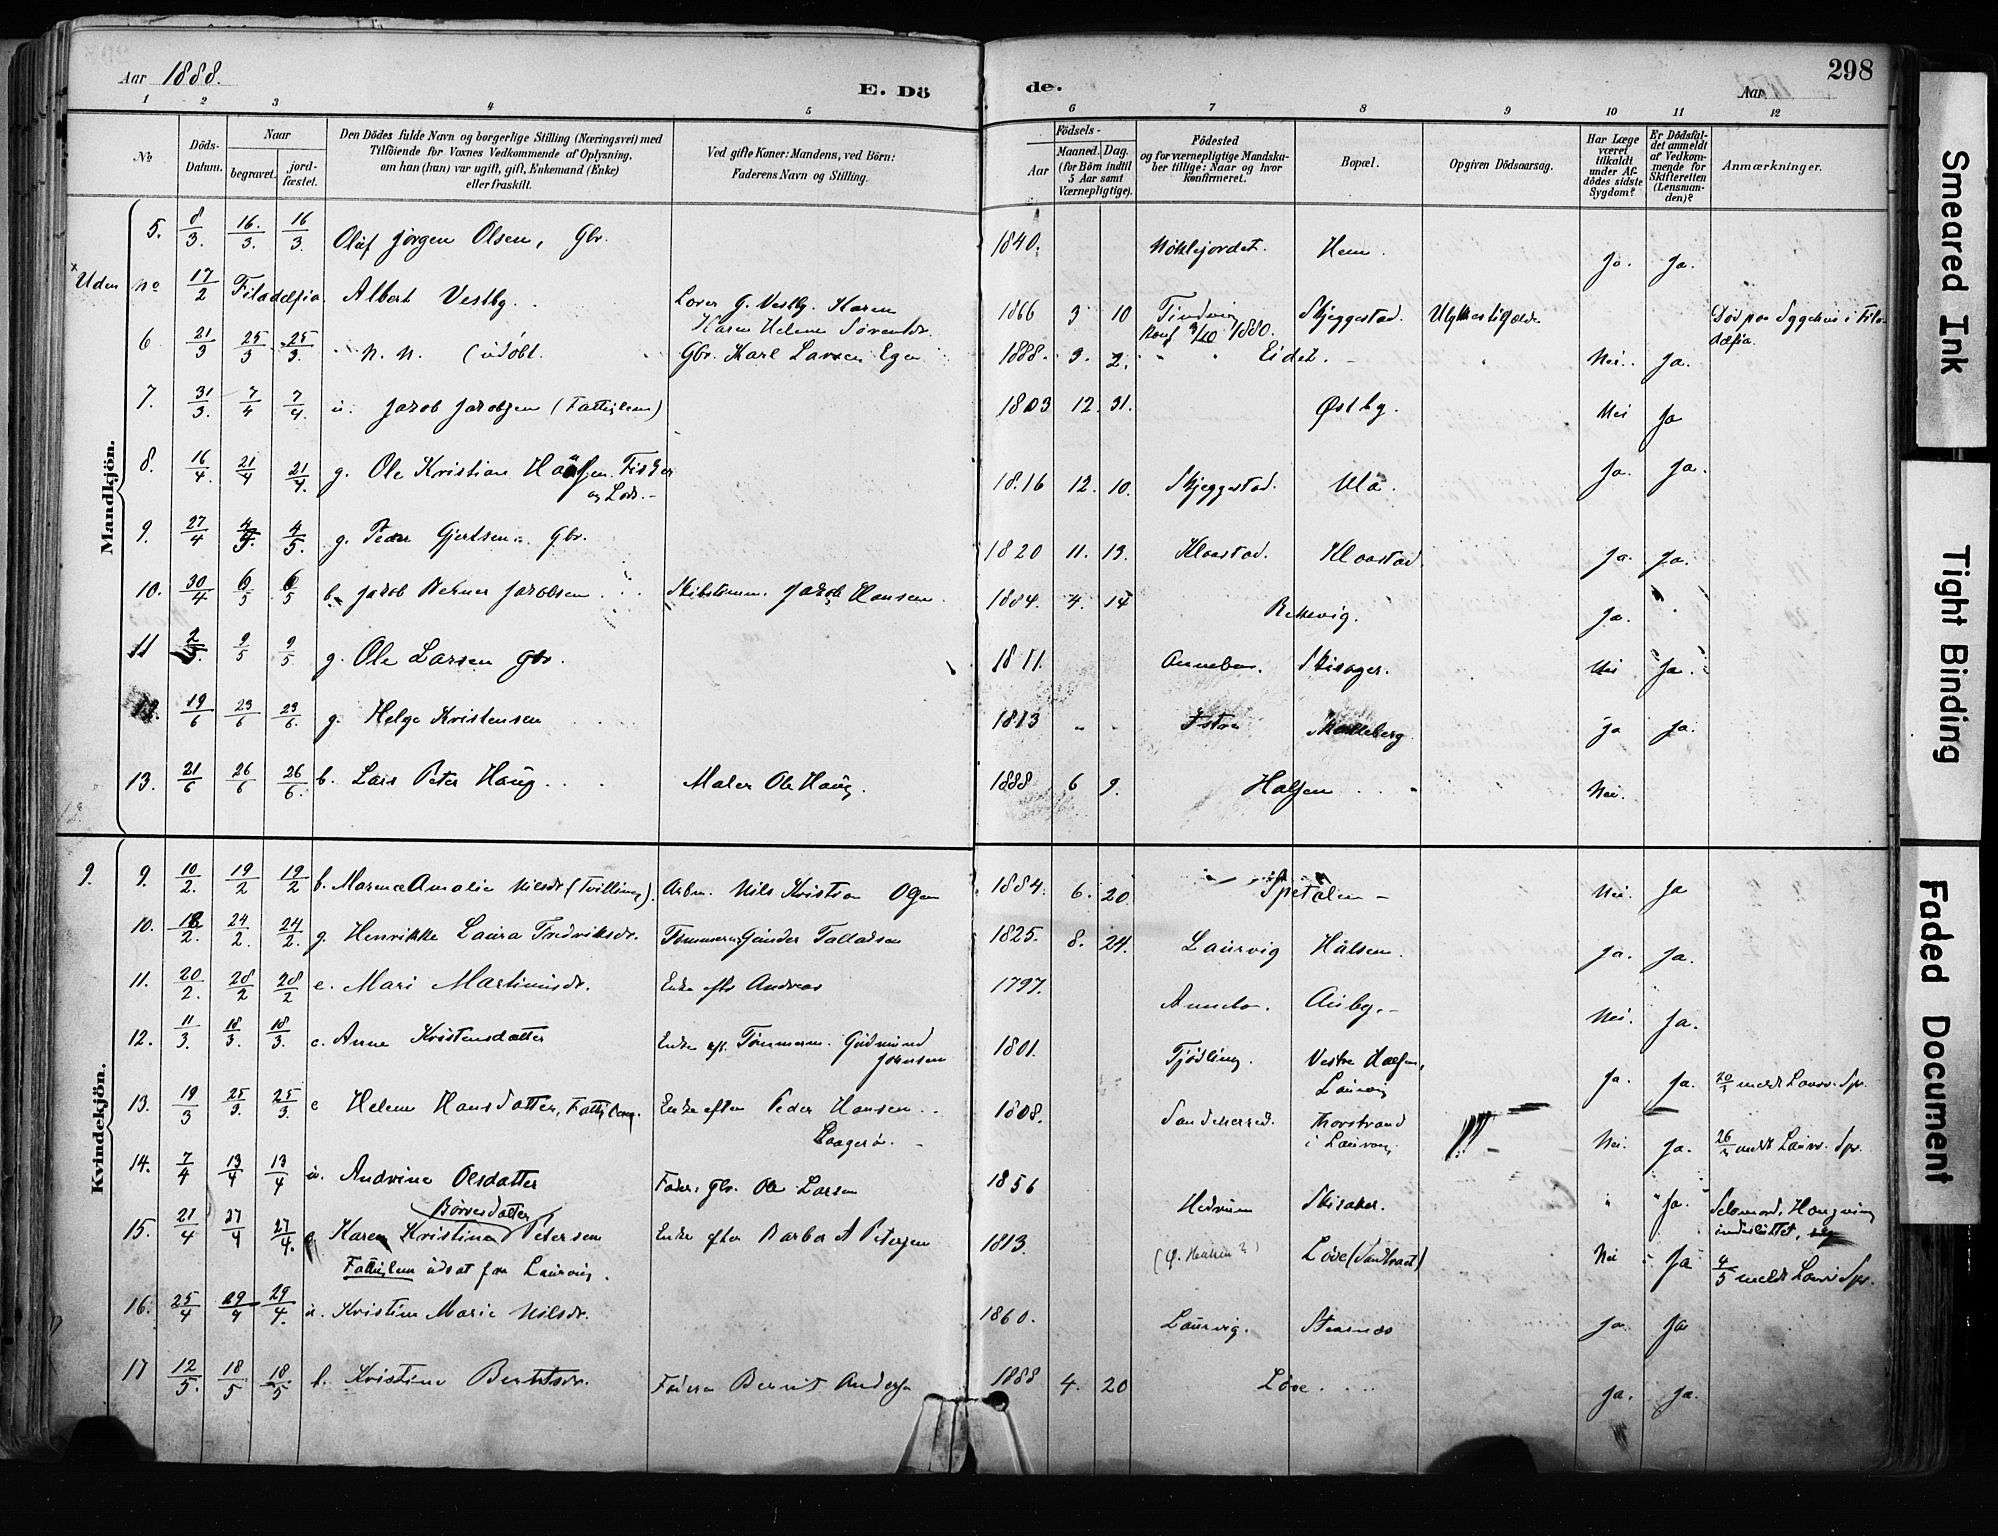 Aar 1888.
E. Dö
de.
Aar
298
1 2 3 4 5 6 7 8 9 10 11 12
No
Döds-Datum.
Naar
begravet.
jordfæstet.
Den Dödes fulde Navn og borgerlige Stilling (Næringsvei) med
Tilföiende for Voxnes Vedkommende af Oplysning,
om han (hun) var ugift, gift, Enkemand (Enke)
eller fraskilt.
Ved gifte Koner: Mandens, ved Börn:
Faderens Navn og Stilling.
Födsels-
Aar
Maaned.
Dag.
(for Börn indtil
5 Aar samt
Værnepligtige).
Födested
og for værnepligtige Mandska-
ber tillige: Naar og hvor
konfirmeret.
Bopæl.
Opgiven Dödsaarsag.
Har Læge
været
tilkaldt
under Af-
dödes sidste
Sygdom?
Er Dödsfal-
det anmeldt
af Vedkom-
mende for
Skifteretten
(Lensman-
den)?
Anmærkninger.
Mandkjön.
5. 8/3. 16./3. 16/3. Olaf Jörgen Olsen, Gbr. 1840. Nöklejordet. Hem. Ja. Ja.
Uden No 17/2 Filadelfia. Albert Vestby. Lover G. Vestby. Karen
Karen Helene Sörensdr. 1866 3 10 Skjeggestad. Død paa Sygehus i Fila-
Konf 3/10 1880. delfia.
6 21/3 25/3 25/3. N. N. (udöbt. Gbr. Karl Larsen Egen 1888. 3. 2. Eidet. Nei. Ja.
7. 31/3. 7/4 7/4. u. Jacob Jacobsen (Fattiglem) 1803 12. 31. Østby. Nei Ja
8. 16/4. 21/4 21/4. g. Ole Kristian Fisker
og Lods. 1816 12. 10. Skjeggestad. Ula. Ja. Ja.
9. 27/4 4/5. 4/5. g. Peder Gjertsen. Gbr. 1820 11. 13. Klaastad. Klaastad. Ja. Ja.
10. 30/4 6/5 6/5 b. Jacob Berner Jacobsen Skibstömm. Jacob Hansen. 1884. 4. 14 Rekkevig. Ja.
11 2/5. 9/5 9/5. g. Ole Larsen Gbr. 1811. Annebo. Skisager. Nei Ja.
12. 19/6 23/6 23/6. g. Helge Kristensen 1813 Istre Ja Ja.
13. 21/6 26/6 26/6. b. Lars Peter Haug Maler Ole Haug. 1888 6 9. Halsen Nei.
Kvindekjön.
9. 9. 10/2. 19/2 19/2 b. Maren Amalie Nilsdr (Tvilling). Arbm. Nils Kristian Olsen 1884. 6. 20 Spetalen Nei. Ja
10. 18/2. 24/2. 24/2. g. Henrikke Laura Fredriksdr. Tømmerm Gunder Talladsen 1825. 8. 24. Laurvig Halsen. Ja. Ja.
11. 20/2. 28/2 28/2 e. Mari Martinusdr. Enke efter Andreas 1797. Annebo. Auby. Nei. Ja.
12. 11/3. 18/3. 18/3. e. Anne Kristensdatter Enke eft. Tömmerm. Gudmund
Johnsen 1801. Tjödling. Vestre Halsen,
Laurvig Ja. Ja. 20/3 meldt Laurv. Spr.
13. 19/3 25/3. 25/3. e Helene Hansdatter, Enke efter Peder Hansen
Laagerö. 1808. Sandeherred. Thorstrand
i Laurvig Nei. Ja. 26/3 meldt Laurv. Spr.
14. 7/4 13/4 13/4 u. Andrine Olsdatter Fader, Gbr. Ole Larsen 1856 Hedrum Skisaker. " " Ja. Selvmord, Hængning
Börresdatter
15. 21/4 27/4 27/4. e Karen Kristine Petersen Enke efter Barbo A Petersen 1813. Löve (Sandtræt) Nei Ja 4/5 meldt Laurv Spr.
Fattiglem udsat fra Laurvig.
16. 25/4 29/4 29/4. u. Kristine Marie Nilsdr. 1860. Laurvig. Stavnæs Ja. Ja
17 12/5. 18/5 18/5 b. Kristine Berntsdr. Faderen Bernt Andersen 1888 4. 20 Löve. Ja. Ja.
Smeared Ink
Tight Binding
Faded Document